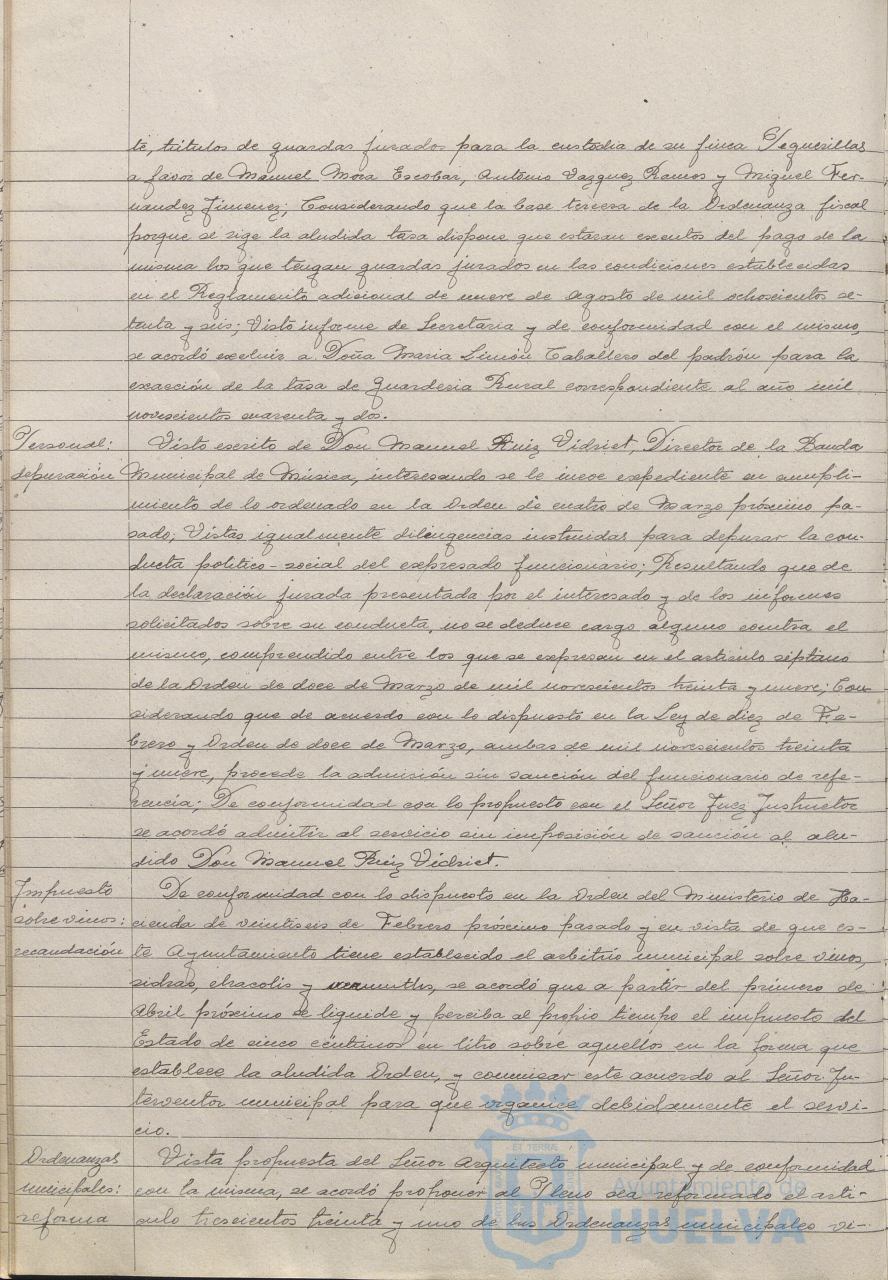 te, títulos de guardas jurados para la custodia de su finca Peguerillas
a favor de Manuel Mora Escobar, Antonio Vazquez Ramos y Miguel Fer-
nandez Jimenez; Considerando que la base tercera de la Ordenanza fiscal
porque se rige la aludida tasa dispone que estaran exentos del pago de la
misma los que tengan guardas jurados en las condiciones establecidas
en el Reglamento adicional de nueve de Agosto de mil ochocientos se-
tenta y seis; Visto informe de Secretaria y de conformidad con el mismo,
se acordó excluir a Doña Maria Limón Caballero del padrón para la
exacción de la tasa de Guarderia Rural correspondiente al año mil
novecientos cuarenta y dos.
Personal:
depuración
Visto escrito de Don Manuel Ruiz Vidriet, Director de la Banda
Municipal de Música, interesando se le incoe expediente en cumpli-
miento de lo ordenado en la Orden de cuatro de Marzo próximo pa-
sado; Vistas igualmente diligencias instruidas para depurar la con-
ducta politico-social del expresado funcionario; Resultando que de
la declaración jurada presentada por el interesado y de los informes
solicitados sobre su conducta, no se deduce cargo alguno contra el
mismo, comprendido entre los que se expresan en el articulo séptimo
de la Orden de doce de Marzo de mil novescientos treinta y nueve; Con-
siderando que de acuerdo con lo dispuesto en la Ley de diez de Fe-
brero y Orden de doce de Marzo, ambas de mil novescientos treinta
y nueve, procede la admisión sin sanción del funcionario de refe-
rencia; De conformidad con lo propuesto con el Señor Juez Instructor
se acordó admitir al servicio sin imposición de sanción al alu-
dido Don Manuel Ruiz Vidriet.
Impuesto
sobre vinos:
recaudación
De conformidad con lo dispuesto en la Orden del Ministerio de Ha-
cienda de veintiseis de Febrero próximo pasado y en vista de que es-
te Ayuntamiento tiene establecido el arbitrio municipal sobre vinos,
sidras, chacolis y vermuths, se acordó que a partir del primero de
Abril próximo se liquide y perciba al propio tiempo el impuesto del
Estado de cinco centimos en litro sobre aquellos en la forma que
establece la aludida Orden, y comunicar este acuerdo al Señor In-
terventor municipal para que organice debidamente el servi-
cio.
Ordenanzas
municipales:
reforma
Vista propuesta del Señor Arquitecto municipal y de conformidad
con la misma, se acordó proponer al Pleno sea reformado el arti-
culo trescientos treinta y uno de las Ordenanzas municipales vi-
Ayuntamiento de
HUELVA